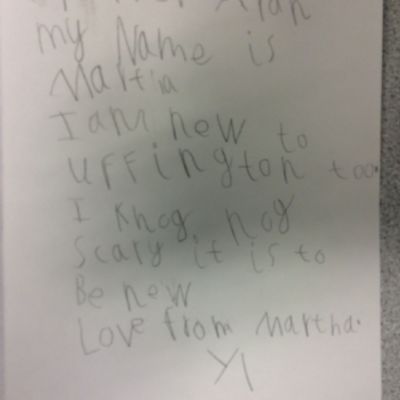 my Name is
Martha
I am new to
uffington too.
I Khog nog
Scary it is to
Be new
Love from Martha.
Y1